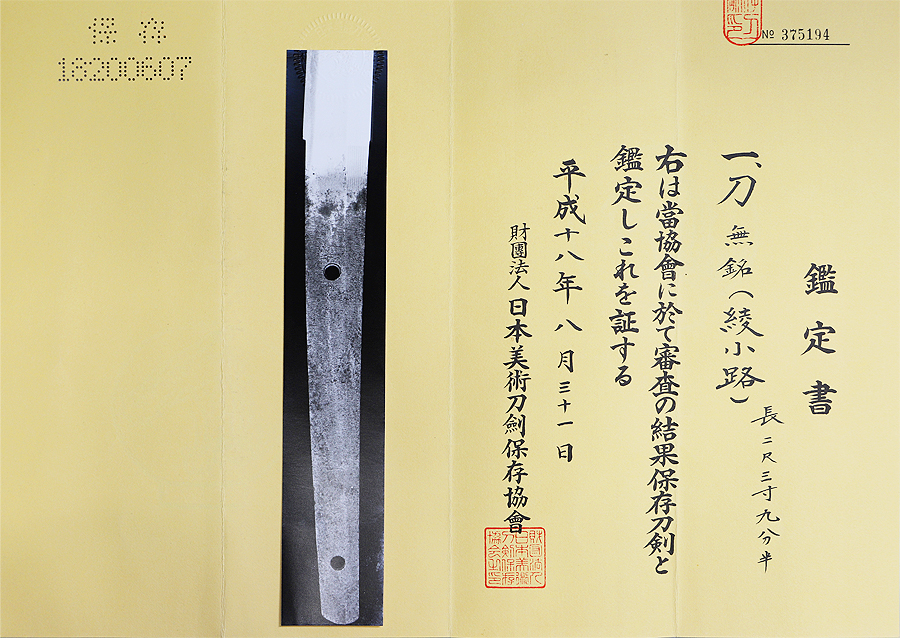 № 375194
鑑定書
一、刀 無銘(綾小路)
長二尺三寸九分半
右は當協會に於て審査の結果保存刀剣と
鑑定しこれを証する
平成十八年八月三十一日
財團法人日本美術刀劍保存協會
保存
18200607